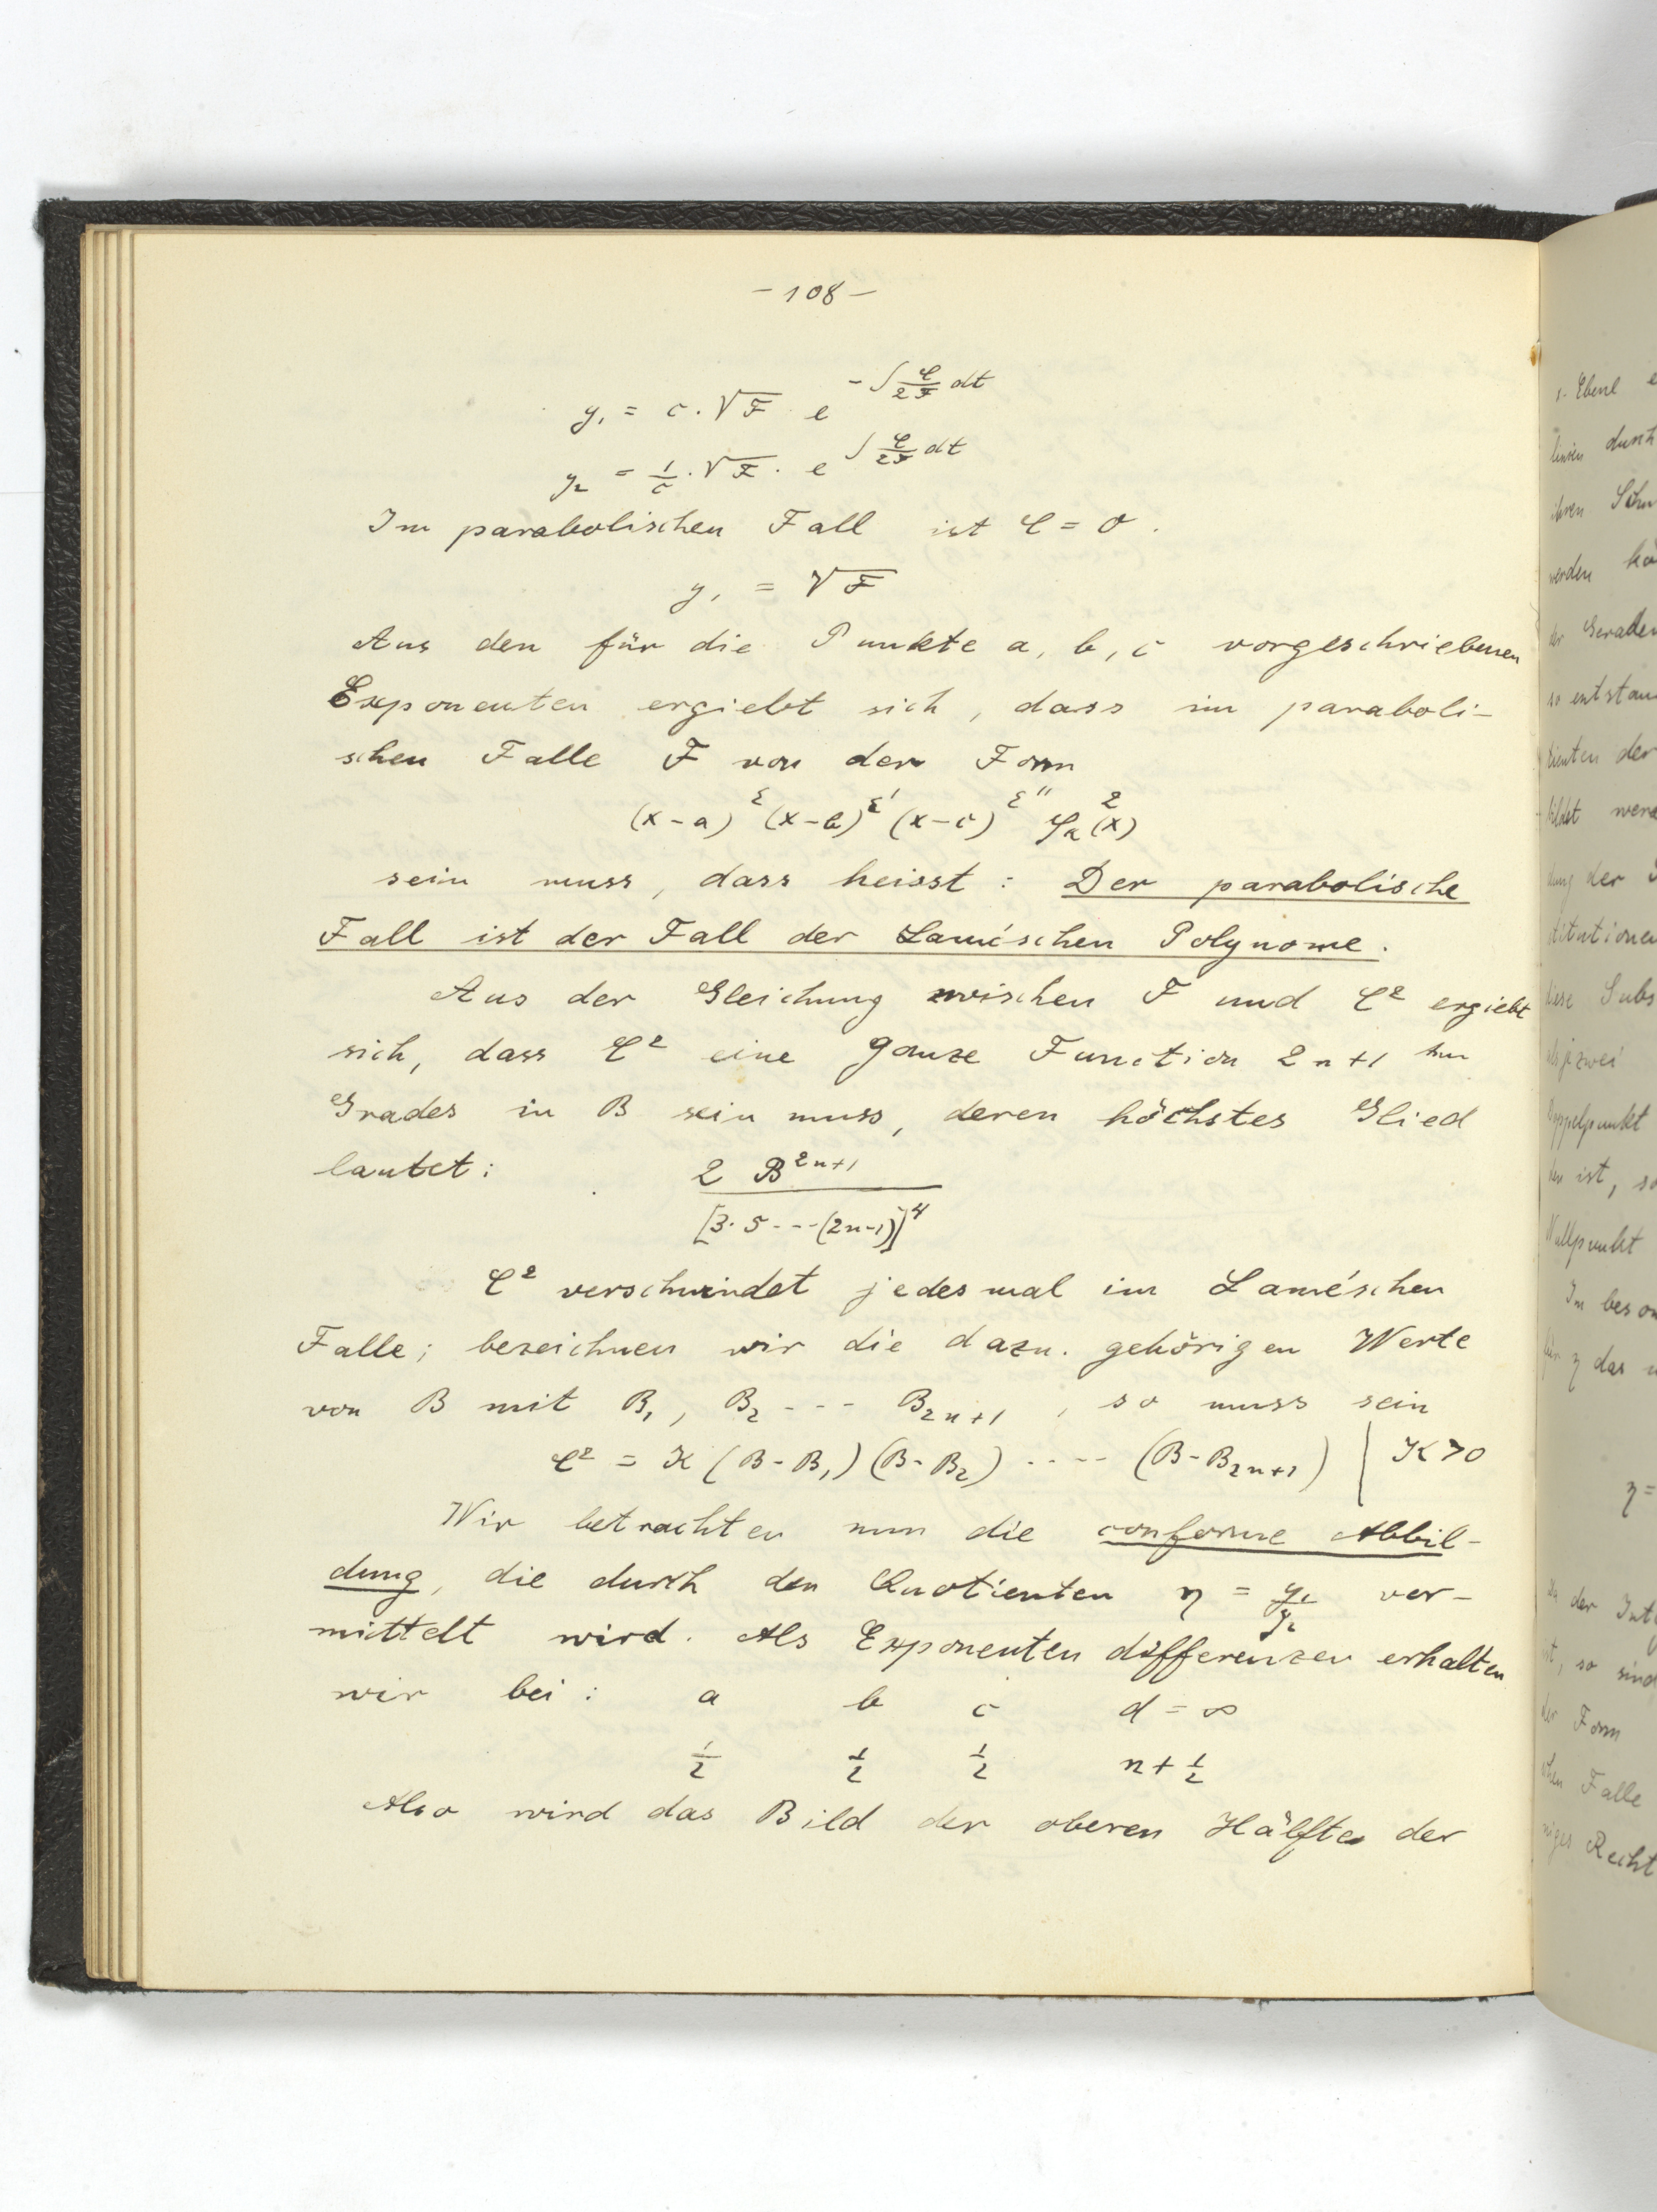 - 108 -
y₁ = c · √F · e^{-∫ C/2F dt}
y₂ = 1/c · √F · e^{∫ C/2F dt}
Im parabolischen Fall ist C = 0.
y₁ = √F
Aus den für die Punkte a, b, c vorgeschriebenen
Exponenten ergiebt sich, dass im paraboli-
schen Falle F von der Form
(x-a)^ε (x-b)^ε' (x-c)^ε'' φ²(x)
sein muss, dass heisst: Der parabolische
Fall ist der Fall der Lamé'schen Polynome.
Aus der Gleichung zwischen F und C² ergiebt
sich, dass C² eine ganze Function 2n+1 ten
Grades in B sein muss, deren höchstes Glied
lautet: 2 B^{2n+1}
[3·5---(2n-1)]⁴
C² verschwindet jedesmal im Lamé'schen
Falle; bezeichnen wir die dazu. gehörigen Werte
von B mit B₁, B₂ --- B_{2n+1}, so muss sein
C² = K (B-B₁)(B-B₂) ---- (B-B_{2n+1}) | K>0
Wir betrachten nun die conforme Abbil-
dung, die durch den Quotienten η = y₁/y₂ ver-
mittelt wird. Als Exponentendifferenzen erhalten
wir bei: a b c d = ∞
1/2 1/2 1/2 n+1/2
Also wird das Bild der oberen Hälfte der
η-Ebene
linien durch
ihren
werden
der Geraden
der
bildet
dung der
diese Subs
zwei
Doppelpunkt
ist, so
Nullpunkt
Im
für η das
η =
der
so sind
der Form
Falle
Recht